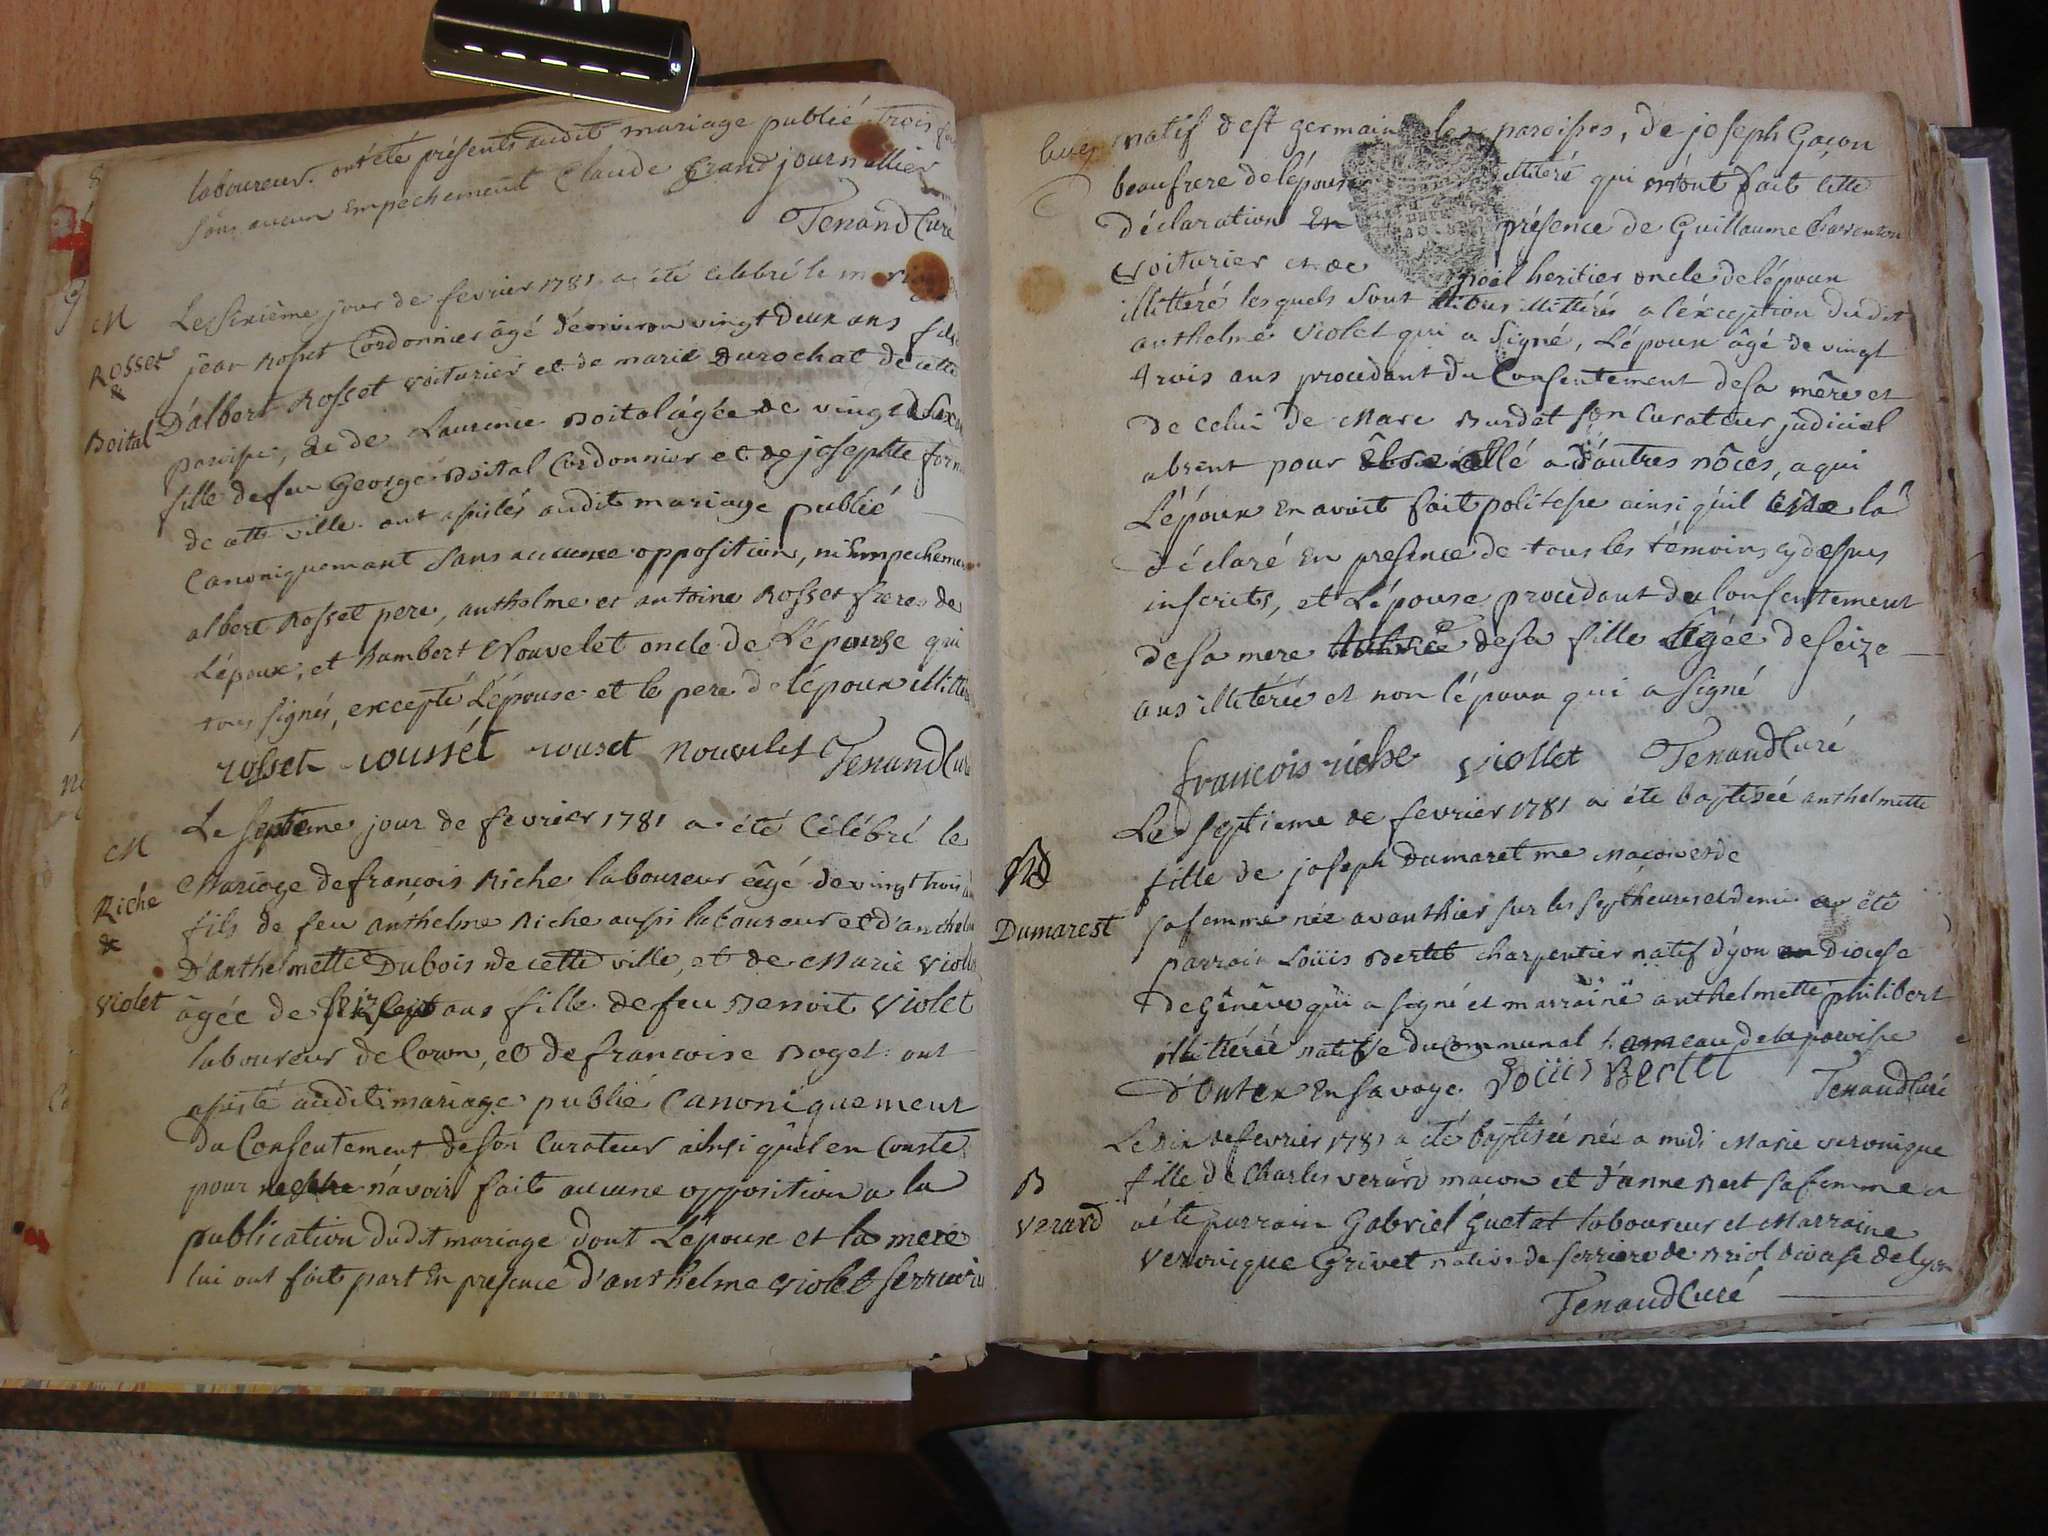 laboureur. ont été présents audit mariage publié trois
sans aucun Empechement Claude grand journallier
Tenand Curé
M
Rosset
&
Boital
Le sixième jour de fevrier 1781 a été célébré le
jean Rosset Cordonnier âgé d'environ vingt deux ans fils
D'albert Rosset voiturier et de marie Durochat de cette
paroisse, & de Laurence Boital âgée de vingt
fille de feu George Boital Cordonnier et de josephte
de cette ville. ont assistés audit mariage publié
Canoniquemant sans aucune opposition, ni Empecheme
albert Rosset pere, anthelme et antoine Rosset freres de
Lépoux, et Rambert Nouvelet oncle de L'épouse qui
tous signés, excepté L'épouse et le pere de lépoux
rosset rousset rouset nouvelet Tenand Curé
M
Riche
&
violet
Le septieme jour de fevrier 1781 a été Célébré le
Mariage de francois Riche laboureur âgé de vingt trois
fils de feu anthelme Riche aussi laboureur et
D'anthelmette Dubois de cette ville, et de Marie violet
âgée de ans fille de feu Benoit violet
laboureur de Coron, et de francoise Boget ont
assisté audit mariage publié Canoniquement
du Consentement de son Curateur ainsi qu'il en Conste
pour n'avoir fait aucune opposition a la
publication dudit mariage dont L'époux et la mere
lui ont fait part En presence d'anthelme violet
natif de st germain les paroisses, de joseph Gaçon
beaufrere de l'épouse illitéré qui m'ont fait cette
déclaration En présence de Guillaume
voiturier et de heritier oncle de lépoux
illittéré lesquels sont tous illittérés a l'éxception dudit
anthelme violet qui a Signé, L'époux âgé de vingt
trois ans procédant du Consentement de sa mère et
de celui de Marc Burdet son Curateur judiciel
absent pour être allé a d'autres nôces, a qui
L'époux En avoit fait politesse ainsi qu'il la
déclaré En presence de tous les témoins cy dessus
inscrits, et L'épouse procédant du Consentement
de sa mere de sa fille âgée de seize
ans illitérée et non lépoux qui a signé
francois riche viollet Tenand Curé
B
Dumarest
Le septieme de fevrier 1781 a été baptisée anthelmette
fille de joseph Dumaret me Macon et de
sa femme née avanthier sur les septheures et demi a été
parrain Loüis Bertet charpentier natif dyon Diocese
de Génève qui a signé et marraine anthelmette philibert
illittérée native du Communal hameau de la paroisse
d'Ontex En savoye. Loüis Bertet Tenand Curé
B
Verard
Le dix de fevrier 1781 a été baptisée née a midi Marie veronique
fille de Charles verard macon et d'anne Bert sa femme a
été parrain Gabriel Guetat laboureur et Marraine
veronique Grivet native de serriere de Briol diocese de Lyon
Tenand Curé